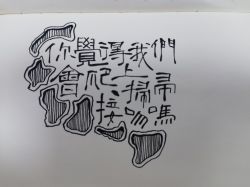 你覺得我們
會爬上掃帚
接吻嗎